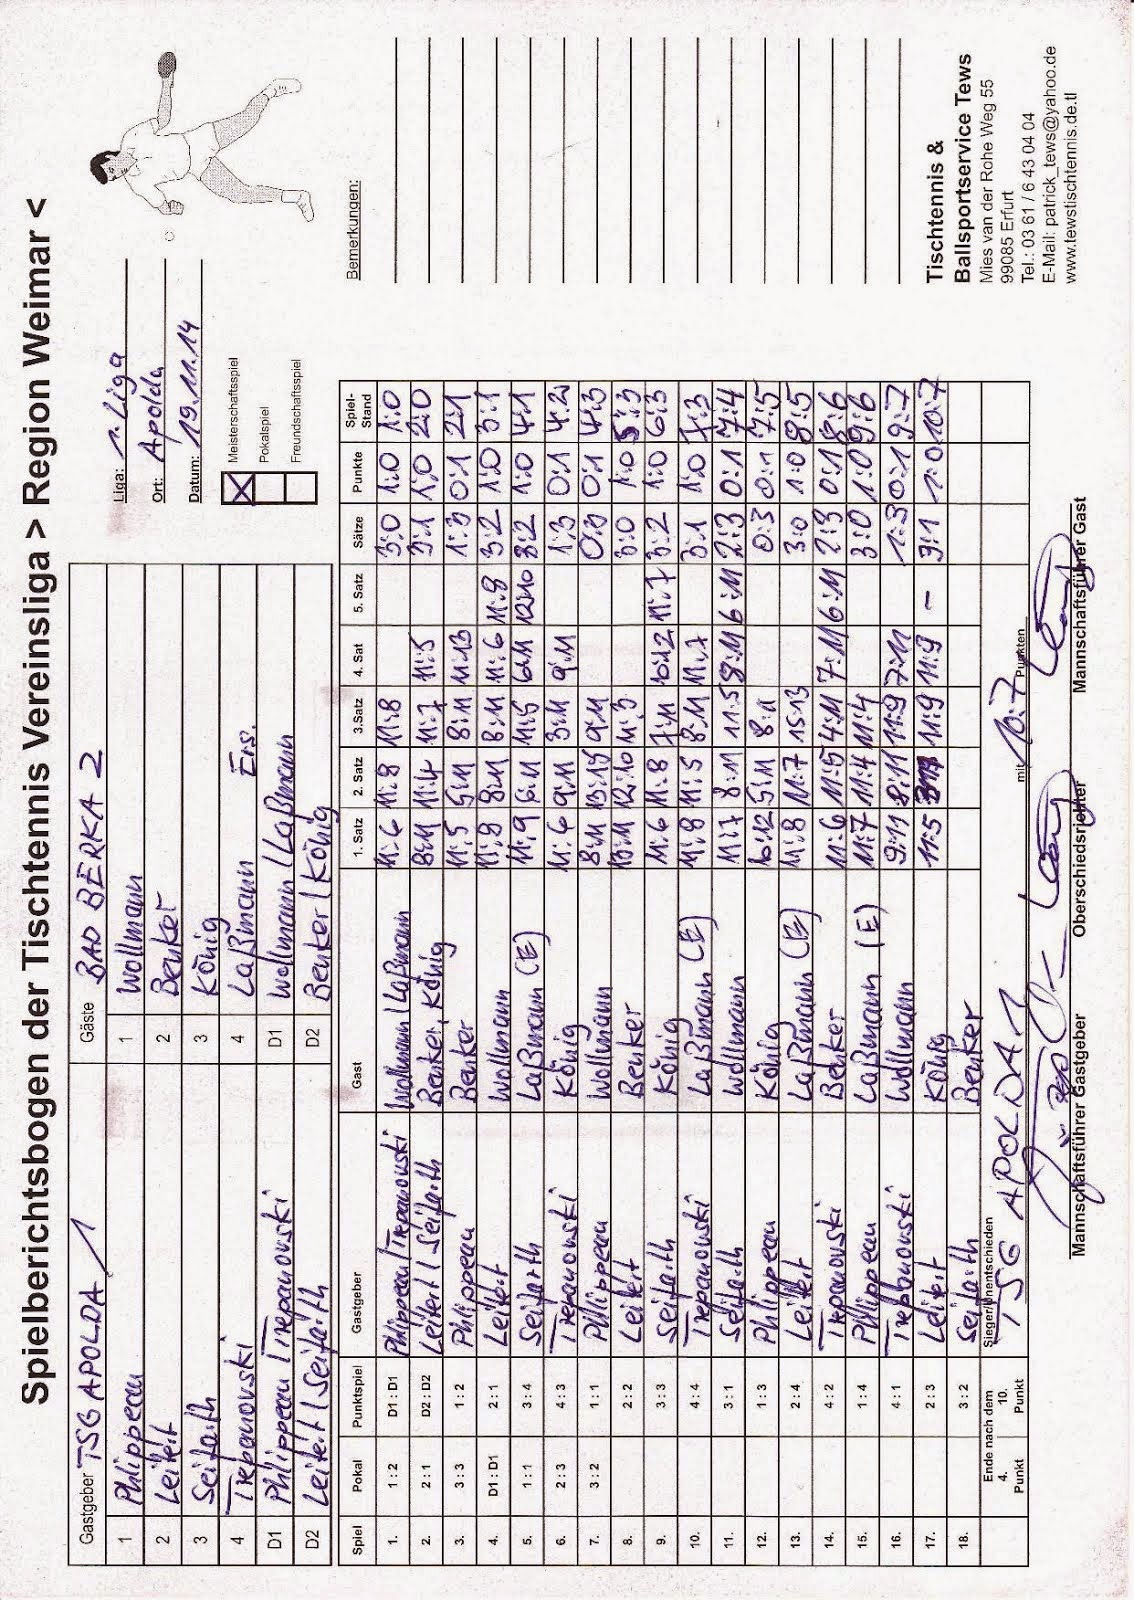 Spielberichtsbogen der Tischtennis Vereinsliga > Region Weimar <
Gastgeber TSG APOLDA 1 Gäste BAD BERKA 2
1 Phlippeau 1 Wollmann
2 Leitert 2 Benker
3 Seifarth 3 König
4 Trepanovski 4 Laßmann Ers.
D1 Phlippeau / Trepanovski D1 Wollmann / Laßmann
D2 Leitert / Seifarth D2 Benker / König
Liga: 1. Liga
Ort: Apolda
Datum: 19.11.14
X Meisterschaftsspiel
Pokalspiel
Freundschaftsspiel
Spiel Pokal Punktspiel Gastgeber Gast 1. Satz 2. Satz 3.Satz 4. Sat 5. Satz Sätze Punkte Spiel-Stand
1. 1 : 2 D1 : D1 Phlippeau/Trepanovski Wollmann/Laßmann 11:6 11:8 11:8 3:0 1:0 1:0
2. 2 : 1 D2 : D2 Leitert / Seifarth Benker, König 8:11 11:4 11:7 11:5 3:1 1:0 2:0
3. 3 : 3 1 : 2 Phlippeau Benker 11:5 5:11 8:11 11:13 1:3 0:1 2:1
4. D1 : D1 2 : 1 Leitert Wollmann 11:8 8:11 8:11 11:6 11:8 3:2 1:0 3:1
5. 1 : 1 3 : 4 Seifarth Laßmann (E) 11:9 6:11 11:5 6:11 12:10 3:2 1:0 4:1
6. 2 : 3 4 : 3 Trepanovski König 11:6 9:11 3:11 9:11 1:3 0:1 4:2
7. 3 : 2 1 : 1 Phlippeau Wollmann 8:11 13:15 9:11 0:3 0:1 4:3
8. 2 : 2 Leitert Benker 13:11 12:10 11:3 3:0 1:0 5:3
9. 3 : 3 Seifarth König 11:6 11:8 7:11 10:12 11:7 3:2 1:0 6:3
10. 4 : 4 Trepanovski Laßmann (E) 11:8 11:5 8:11 11:7 3:1 1:0 7:3
11. 3 : 1 Seifarth Wollmann 11:7 8:11 11:5 8:11 6:11 2:3 0:1 7:4
12. 1 : 3 Phlippeau König 10:12 5:11 8:11 0:3 0:1 7:5
13. 2 : 4 Leitert Laßmann (E) 11:8 11:7 15:13 3:0 1:0 8:5
14. 4 : 2 Trepanovski Benker 11:6 11:5 4:11 7:11 6:11 2:3 0:1 8:6
15. 1 : 4 Phlippeau Laßmann (E) 11:7 11:4 11:4 3:0 1:0 9:6
16. 4 : 1 Trepanovski Wollmann 9:11 8:11 11:9 7:11 1:3 0:1 9:7
17. 2 : 3 Leitert König 11:5 11:9 11:9 – 3:1 1:0 10:7
18. 3 : 2 Seifarth Benker
Ende nach dem
4. 10.
Punkt Punkt
Sieger/Unentschieden
TSG APOLDA 1 mit 10:7 Punkten
Mannschaftsführer Gastgeber Oberschiedsrichter Mannschaftsführer Gast
Bemerkungen:
Tischtennis &
Ballsportservice Tews
Mies van der Rohe Weg 55
99085 Erfurt
Tel.: 03 61 / 6 43 04 04
E-Mail: patrick_tews@yahoo.de
www.tewstischtennis.de.tl